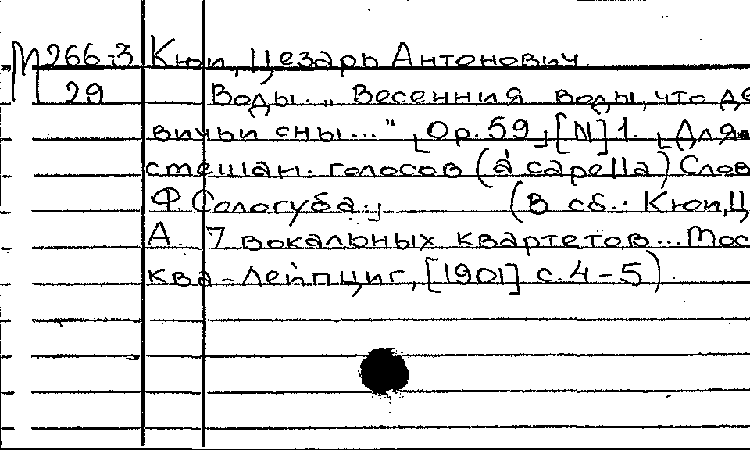 М 266-3 Кюи, Цезарь Антонович.
29 Воды. „ Весенния воды, что де
вичьи сны..." [Ор. 59,] [N] 1. [Для
смешан. голосов (a capella) Слов
Ф. Сологуба.] (В сб.: Кюи, Ц.
А. 7 вокальных квартетов... Мос
ква - Лейпциг, [1901] с. 4-5).